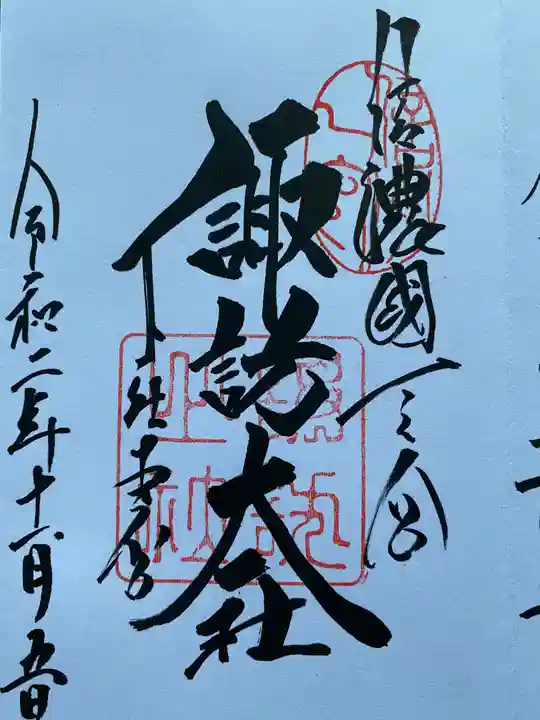 信濃國一之宮
諏訪大社
下社春宮
令和二年十一月五日